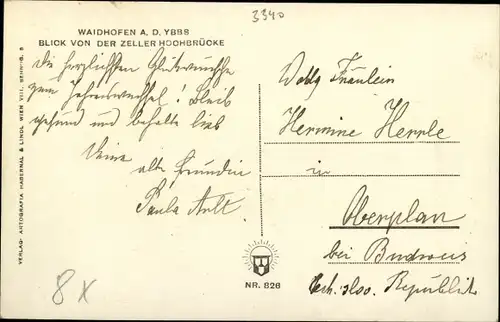 3340
WAIDHOFEN A. D. YBBS
BLICK VON DER ZELLER HOCHBRÜCKE
Die herzlichsten Glückwünsche
zum Jahreswechsel! Bleib
gesund und behalte lieb
Deine
alte Freundin
Paula Arlt.
Fräulein
Hermine Herrle
in
Oberplan
bei Budweis
Tech.-slov. Republik
VERLAG: ARTOGRAFIA HABERNAL & LINDL WIEN VIII.
NR. 826
8X